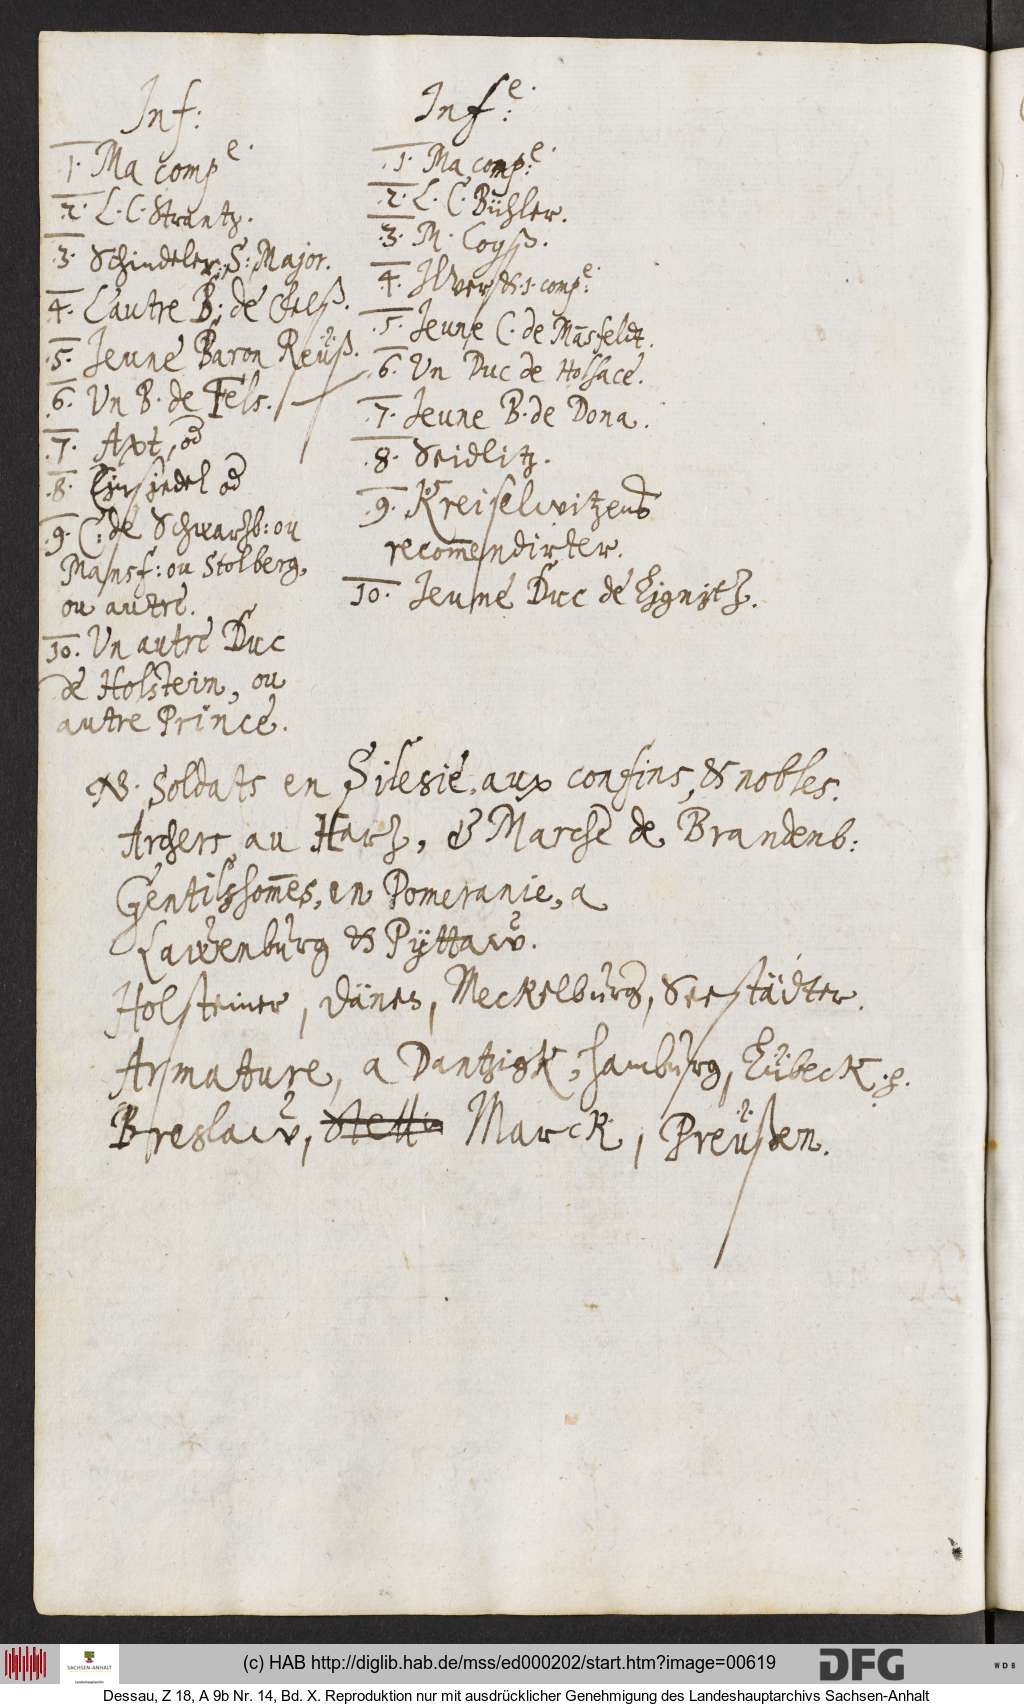 Inf:
1. Ma comp e.
2. L. C. Strantz.
3. Schindeler, S: Major.
4. L'autre B: de
5. Jeune Baron Reüß.
6. Un B. de Fels.
7. Axt, od
8. Einsiedel od
9. C: de Schwarzb: ou
Mansf: ou Stolberg,
ou autre.
10. Un autre Duc
de Holstein, ou
autre Prince.
Inf e.:
1. Ma comp e.:
2. L. C. Bühler.
3. M. Loyß.
4. 1. comp e.:
5. Jeune C. de Mãsfeldt.
6. Un Duc de Holsace.
7. Jeune B. de Dona.
8. Seidlitz.
9. Kreiselwitzens
recom̃endirter.
10. Jeune Duc de Lignitz.
NB. Soldats en Silesie, aux confins, & nobles.
Archers au Hartz, & Marche de Brandenb:
Gentilshom̃es, en Pomeranie, a
Lawenburg & Püttaw.
Holsteiner, Dänen, Meckelburg, Seestädter.
Armature, a Dantzigk, hamburg, Lübeck. p.
Breslaw, Stetti Marck, Preüßen.
(c) HAB http://diglib.hab.de/mss/ed000202/start.htm?image=00619
SACHSEN-ANHALT
DFG
WDB
Dessau, Z 18, A 9b Nr. 14, Bd. X. Reproduktion nur mit ausdrücklicher Genehmigung des Landeshauptarchivs Sachsen-Anhalt